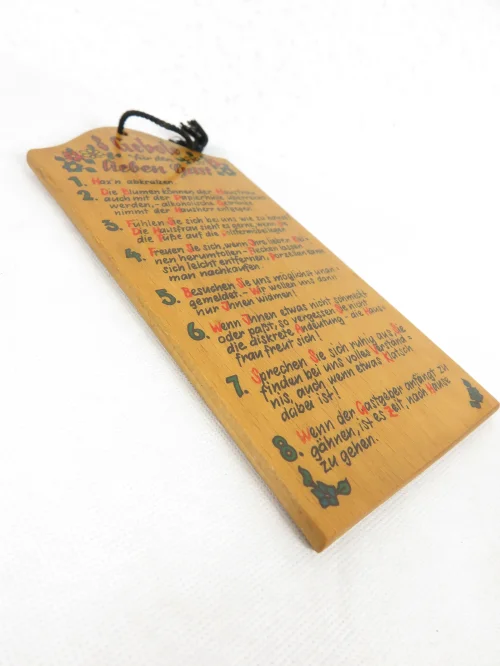 8 Gebote
für den
lieben Gast
1. Has'n abkratzen
2. Die Blumen können der Hausfrau
auch mit der Papierhülle überreicht
werden, – alkoholische Getränke
nimmt der Hausherr entgegen.
3. Fühlen Sie sich bei uns wie zu Hause!
Die Hausfrau sieht es gerne, wenn Sie
die Füße auf die
4. Freuen Sie sich, wenn Ihre lieben Klei-
nen herumtollen – Flecken lassen
sich leicht entfernen, Porzellan kann
man nachkaufen.
5. Besuchen Sie uns möglichst unan-
gemeldet. – Wir wollen uns dann
nur Ihnen widmen!
6. Wenn Ihnen etwas nicht schmeckt
oder paßt, so vergessen Sie nicht
die diskrete Andeutung – die Haus-
frau freut sich!
7. Sprechen Sie sich ruhig aus, Sie
finden bei uns volles Verständ-
nis, auch wenn etwas Klatsch
dabei ist!
8. Wenn der Gastgeber anfängt zu
gähnen, ist es Zeit, nach Hause
zu gehen.